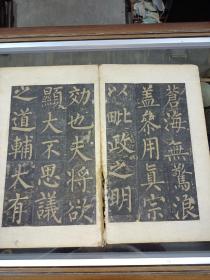 蒼海無驚浪
盖叅用真宗
以毗大政之明
効也夫將欲
顯大不思議
之道輔大有